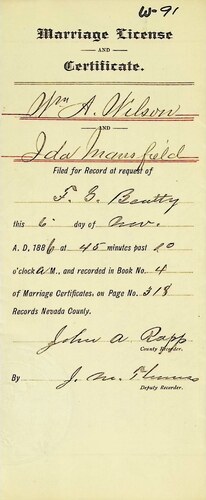 W-91
Marriage License
AND
Certificate.
Wm A. Wilson
AND
Ida Mansfield
Filed for Record at request of
F. G. Beatty
this 6 day of Nov.
A. D. 1886 at 45 minutes past 10
o'clock A M., and recorded in Book No. 4
of Marriage Certificates, on Page No. 318
Records Nevada County.
John A Rapp
County Recorder.
By J. M. Thomas
Deputy Recorder.